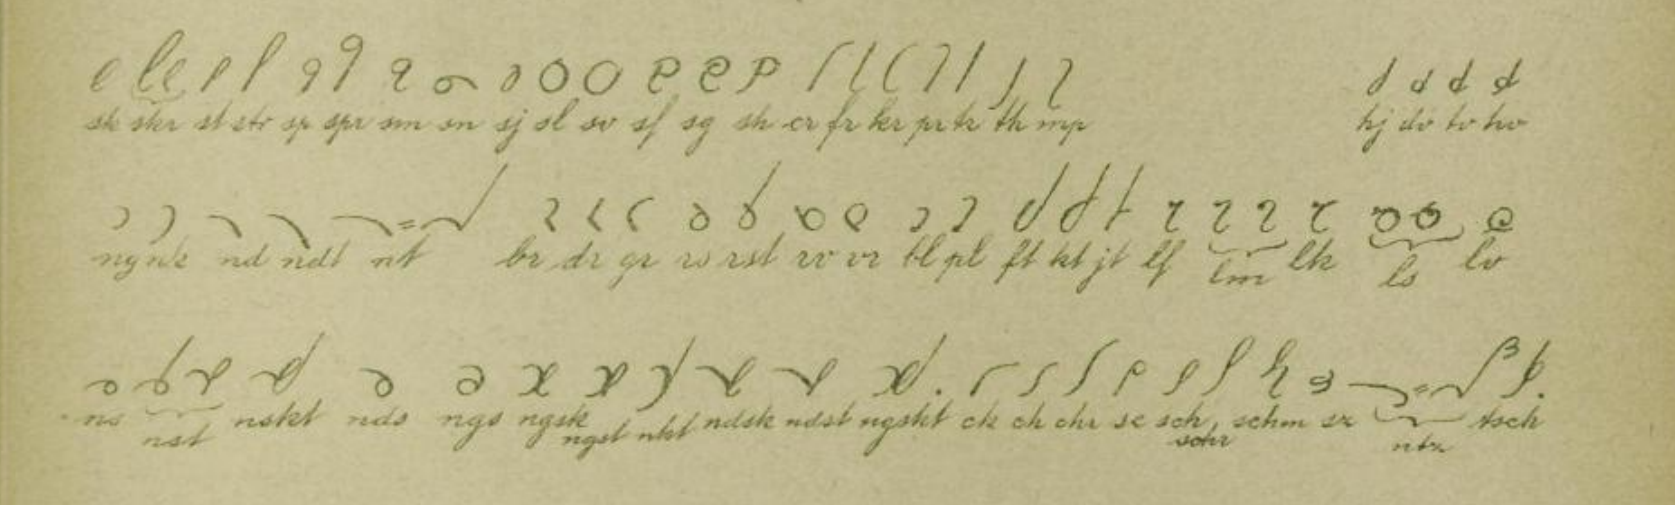 sk skr st str sp spr sm sn sj sl sv sf sg sh cr fr kr pr tr th mp hj dv tv hv
ng nk nd ndt nt = br dr gr rs rst rv vr bl pl ft kt jt lf lm lk ls lv
ns nst nskt nds ngs ngsk ngst nkt ndsk ndst ngskt ck ch chr sc sch, schr schm sz ntz = tsch